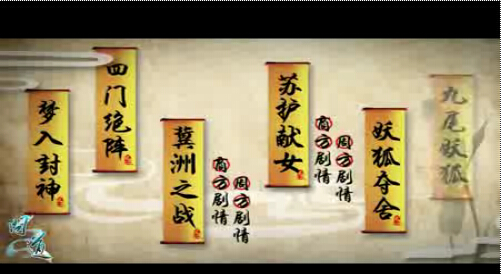 梦入封神
四门绝阵
冀洲之战
商方剧情
周方剧情
苏护献女
商方剧情
周方剧情
妖狐夺舍
九尾妖狐